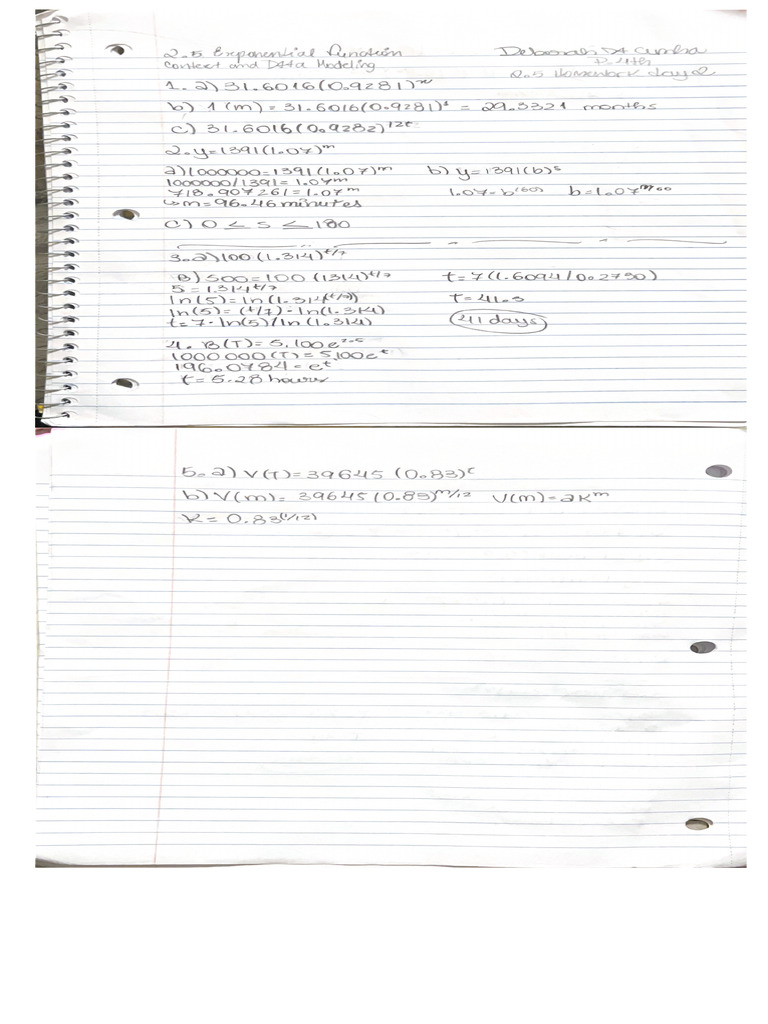 2.5 Exponential Function
Context and Data Modeling
Deborah DA Cunha
P. 4th
2.5 Homework day 2
1. a) 31.6016(0.9281)^m
b) 1(m) = 31.6016(0.9281)^1 = 29.3321 months
c) 31.6016(0.9282)^12t
2. y=1391(1.07)^m
a) 1000000=1391(1.07)^m
1000000/1391= 1.07^m
718.907261=1.07^m
m=96.46 minutes
b) y=1391(b)^s
1.07=b^(60) b=1.07^m/60
c) 0 ≤ s ≤ 180
3. a) 100(1.314)^t/7
B) 500=100 (1314)^t/7
5=1.314^t/7
ln(5)=ln(1.314^(t/7))
ln(5)=(t/7)·ln(1.314)
t=7·ln(5)/ln(1.314)
t=7(1.6094/0.2730)
t=41.3
41 days
4. B(T)=5,100e
1000000(T)=5,100e^t
196.0784=e^t
t=5.28 hours
5. a) V(T)=39645 (0.83)^t
b) V(m)= 39645(0.83)^m/12 V(m)=ak^m
K= 0.83^(1/12)